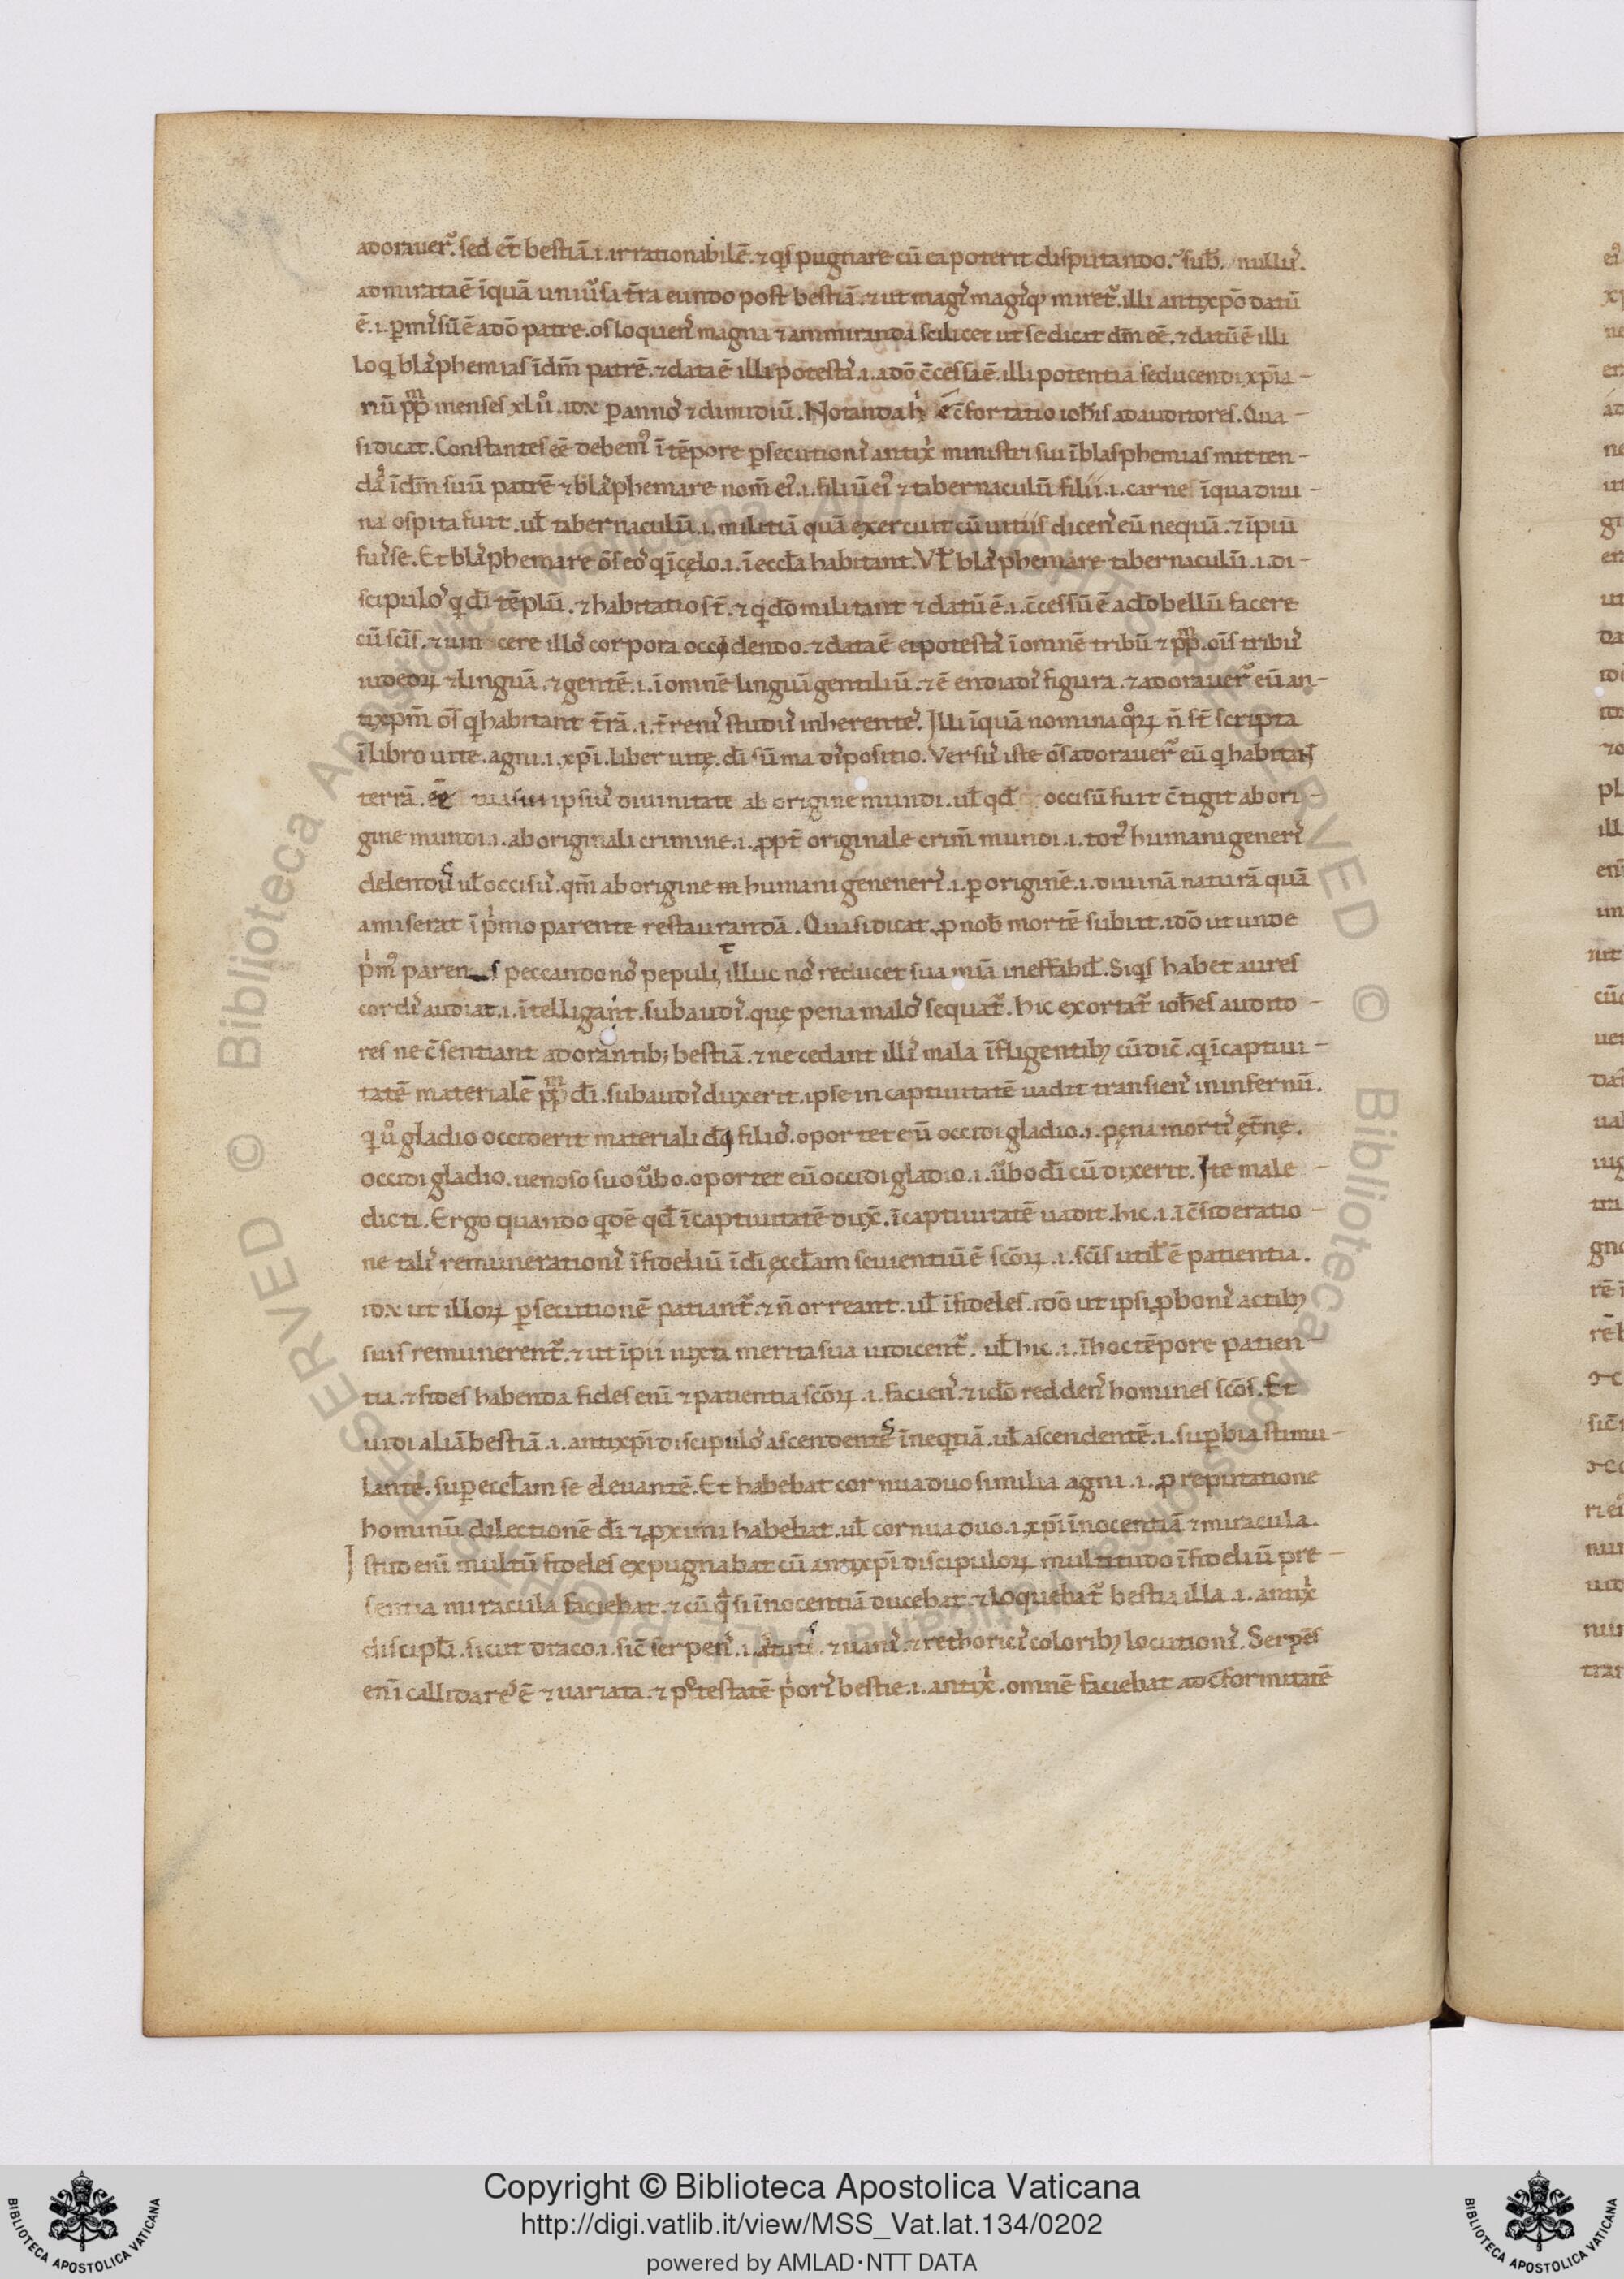 adorauer᷑. sed et̄ bestiā .i. irrationabilē. ⁊ qͥs pugnare cū ea poterit disputando. sub̄. nullus᷒.
admirata ē inquā uniūsa t̄ra eundo post bestiā. ⁊ ut magis magisqꝫ miret᷑. illi antixp̄o datū
ē .i. ꝑmissū ē a dō patre. os loquens magna ⁊ ammiranda scilicet ut se dicat dm̄ eē. ⁊ datū ē illi
loqi blasphemias ī dm̄ patrē. ⁊ data ē illi potestas .i. a dō c̄cessa ē. illi potentia seducendi xp̄ia-
nū pp̄m menses xlii. idx ꝑ annos ⁊ dimidiū. Notanda h ē c̄fortatio ioh̄is ad auditores. Qua-
si dicat. Constantes eē debem᷒ ī tēpore ꝑsecutionis antix̄ ministri sui ī blasphemias mitten-
das ī dm̄ suū patrē ⁊ blasphemare nom̄ ei᷒ .i. filiū ei᷒ ⁊ tabernaculū filii .i. carnes ī qua diui-
na ospita fuit. ul̄ tabernaculū .i. militiā quā exercuit cū uitiis dicens eū nequā. ⁊ īpiū
fuisse. Et blasphemare om̄s eos qi ī cęlo .i. ī eccl̄a habitant. Vl̄ blasphemare tabernaculū .i. di-
scipulos qi dī tēplū. ⁊ habitatio st̄. ⁊ qi dō militant ⁊ datū ē .i. c̄cessū ē a dō bellū facere
cū scīs. ⁊ uincere illos corpora occidendo. ⁊ data ē ei potestas ī omnē tribū ⁊ pp̄m. oīs tribus
iudeoꝝ ⁊ linguā. ⁊ gentē .i. ī omnē linguā gentiliū. ⁊ ē endiadis figura. ⁊ adorauer᷑ eū an-
tixpm̄ om̄s qi habitant t̄rā .i. t̄renis studiis inherentes. Illi inquā nomina qoꝝ n̄ st̄ scripta
ī libro uite. agni .i. xp̄i. liber uitę. dī sūma dispositio. Versus iste om̄s adorauer᷑ eū qi habitant
terrā. ab origine mundi. ul̄ qd̄ occisū fuit c̄tigit ab ori-
gine mundi .i. ab originali crimine .i. ꝓpt̄ originale crim̄ mundi .i. toti᷒ humani generis
delendū ul̄ occisus. qm̄ ab origine m humani geneneris .i. ꝑ originē .i. diuinā naturā quā
amiserat ī pͥmo parente restaurandā. Quasi dicat. ꝓ nob̄ mortē subiit. idō ut unde
pͥm᷒ parens peccando nos pepulit, illuc nos reducet sua mīa ineffabil̄. Si qͥs habet aures
cordis audiat .i. ītelligant. subaudis. quę pena malos sequat᷑. hic exortat᷑ ioh̄es audito-
res ne c̄sentiant adorantibꝫ bestiā. ⁊ ne cedant illis mala īfligentibꝫ cū dic̄. qi ī captiui-
tatē materialē pp̄m dī. subaudis duxerit. ipse in captiuitatē uadit transiens in infernū.
qi uͦ gladio occiderit materiali filios. oportet eū occidi gladio .i. pęna mortis ęt̄nę.
occidi gladio. uenoso suo ūbo. oportet eū occidi gladio .i. ūbo dī cū dixerit. Ite male-
dicti. Ergo quando qidē qd̄ ī captiuitatē dux̄. ī captiuitatē uadit. hic .i. ī c̄sideratio-
ne talis remunerationis īfideliū ī dī ęccl̄am seuientiū ē scōꝝ .i. scīs util̄ ē patientia.
idx ut illoꝝ ꝑsecutionē patiant᷑. ⁊ n̄ orreant. ul̄ īfideles. idō ut ipsi ꝓ bonis actibꝫ
suis remunerent᷑. ⁊ ut īpii iuxta merita sua iudicent᷑. ul̄ hic .i. ī hoc tēpore patien-
tia. ⁊ fides habenda fides enī ⁊ patientia scōꝝ .i. faciens. ⁊ idō reddens homines scōs. Et
uidi aliā bestiā .i. antixp̄i discipulos ascendentēs ī neqitiā. ul̄ ascendentē .i. suꝑbia stimu-
lante. suꝑ eccl̄am se eleuantē. Et habebat cornua duo similia agni .i. ꝓ reputatione
hominū dilectionē dī ⁊ ꝓximi habebat. ul̄ cornua duo .i. xp̄i īnocentiā ⁊ miracula.
Istud enī multū fideles expugnabat cū antixp̄i discipuloꝝ multitudo īfideliū pre-
sentia miracula faciebat. ⁊ cū qͣsi īnocentiā ducebat. ⁊ loquebat᷑ bestia illa .i. antix̄
discipl̄i. sicut draco .i. sic̄ serpens .i. astutis. ⁊ uanis. ⁊ rethoricis coloribꝫ locutionis. Serpēs
enī callida res ē ⁊ uariata. ⁊ potestatē pͥoris bestie .i. antix̄. omnē faciebat ad c̄formitatē
Copyright © Biblioteca Apostolica Vaticana
http://digi.vatlib.it/view/MSS_Vat.lat.134/0202
powered by AMLAD·NTT DATA